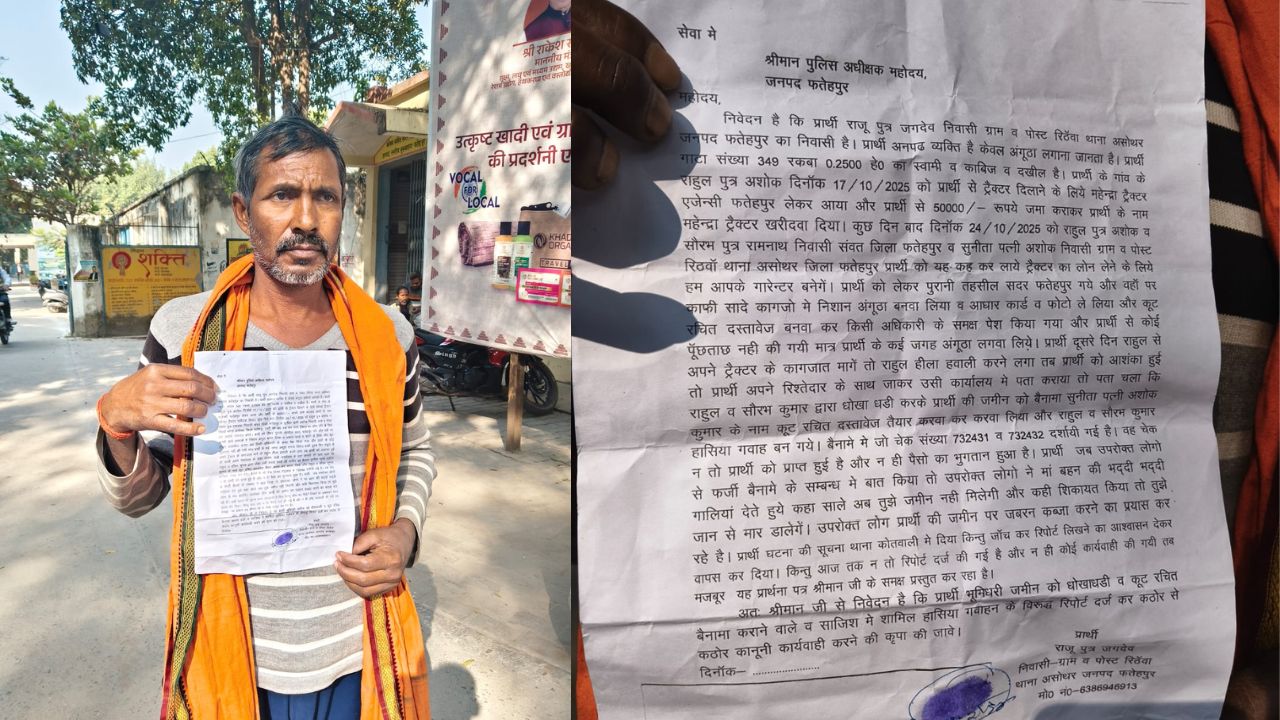 शक्ति
श्री राकेश
उत्कृष्ट खादी एवं
की प्रदर्शनी
VOCAL
FOR
LOCAL
सेवा मे
श्रीमान पुलिस अधीक्षक महोदय,
जनपद फतेहपुर
महोदय,
निवेदन है कि प्रार्थी राजू पुत्र जगदेव निवासी ग्राम व पोस्ट रिठॅवा थाना असोथर
जनपद फतेहपुर का निवासी है। प्रार्थी अनपढ व्यक्ति है केवल अंगूठा लगाना जानता है। प्रार्थी
गाटा संख्या 349 रकबा 0.2500 हे0 का स्वामी व काबिज व दखील है। प्रार्थी के गांव के
राहुल पुत्र अशोक दिनॉक 17/10/2025 को प्रार्थी से ट्रैक्टर दिलाने के लिये महेन्द्रा ट्रैक्टर
एजेन्सी फतेहपुर लेकर आया और प्रार्थी से 50000/– रूपये जमा कराकर प्रार्थी के नाम
महेन्द्रा ट्रैक्टर खरीदवा दिया। कुछ दिन बाद दिनॉक 24/10/2025 को राहुल पुत्र अशोक व
सोरम पुत्र रामनाथ निवासी संवत जिला फतेहपुर व सुनीता पत्नी अशोक निवासी ग्राम व पोस्ट
रिठवॉ थाना असोथर जिला फतेहपुर प्रार्थी को यह कह कर लाये ट्रैक्टर का लोन लेने के लिये
हम आपके गारेन्टर बनेगें। प्रार्थी को लेकर पुरानी तहसील सदर फतेहपुर गये और वहॉ पर
काफी सादे कागजो मे निशान अंगूठा बनवा लिया व आधार कार्ड व फोटो ले लिया और कूट
रचित दस्तावेज बनवा कर किसी अधिकारी के समक्ष पेश किया गया और प्रार्थी से कोई
पूॅछताछ नही की गयी मात्र प्रार्थी के कई जगह अंगूठा लगवा लिये। प्रार्थी दूसरे दिन राहुल से
अपने ट्रैक्टर के कागजात मागें तो राहुल हीला हवाली करने लगा तब प्रार्थी को आशंका हुई
तो प्रार्थी अपने रिश्तेदार के साथ जाकर उसी कार्यालय मे पता कराया तो पता चला कि
राहुल व सोरम कुमार द्वारा धोखा धडी करके प्रार्थी की जमीन को बैनामा सुनीता पत्नी अशोक
कुमार के नाम कूट रचित दस्तावेज तैयार करवा कर करा लिया और राहुल व सोरम कुमार
हासिया गवाह बन गये। बैनामे मे जो चेक संख्या 732431 व 732432 दर्शायी गई है। वह चेक
न तो प्रार्थी को प्राप्त हुई है और न ही पैसों का भुगतान हुआ है। प्रार्थी जब उपरोक्त लोगो
से फर्जी बैनामे के सम्बन्ध मे बात किया तो उपरोक्त लोगो ने मां बहन की भद्दी भद्दी
गालियां देते हुये कहा साले अब तुझे जमीन नही मिलेगी और कही शिकायत किया तो तुझे
जान से मार डालेगें। उपरोक्त लोग प्रार्थी की जमीन पर जबरन कब्जा करने का प्रयास कर
रहे है। प्रार्थी घटना की सूचना थाना कोतवाली मे दिया किन्तु जॉच कर रिपोर्ट लिखने का आश्वासन देकर
वापस कर दिया। किन्तु आज तक न तो रिपोर्ट दर्ज की गई है और न ही कोई कार्यवाही की गयी तब
मजबूर यह प्रार्थना पत्र श्रीमान जी के समक्ष प्रस्तुत कर रहा है।
अतः श्रीमान जी से निवेदन है कि प्रार्थी भूमिधरी जमीन को धोखाधडी व कूट रचित
बैनामा कराने वाले व साजिश मे शामिल हासिया गवाहन के विरूद्ध रिपोर्ट दर्ज कर कठोर से
कठोर कानूनी कार्यवाही करने की कृपा की जावे।
दिनॉक– ....................
प्रार्थी
राजू पुत्र जगदेव
निवासी–ग्राम व पोस्ट रिठॅवा
थाना असोथर जनपद फतेहपुर
मो0 नं0–6386946913